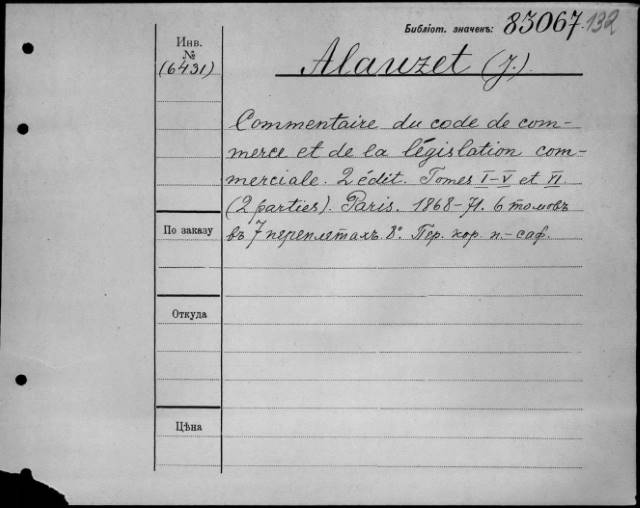 Библіот. значекъ: 83067. 132
Инв.
№
(6431)
Alauzet (J.)
Commentaire du code de com-
merce et de la législation com-
merciale. 2 édit. Tomes I-V et VI.
(2 parties). Paris. 1868-71. 6 томовъ
въ 7 переплетахъ. 8°. Пер. кор. п.-саф.
По заказу
Откуда
Цѣна